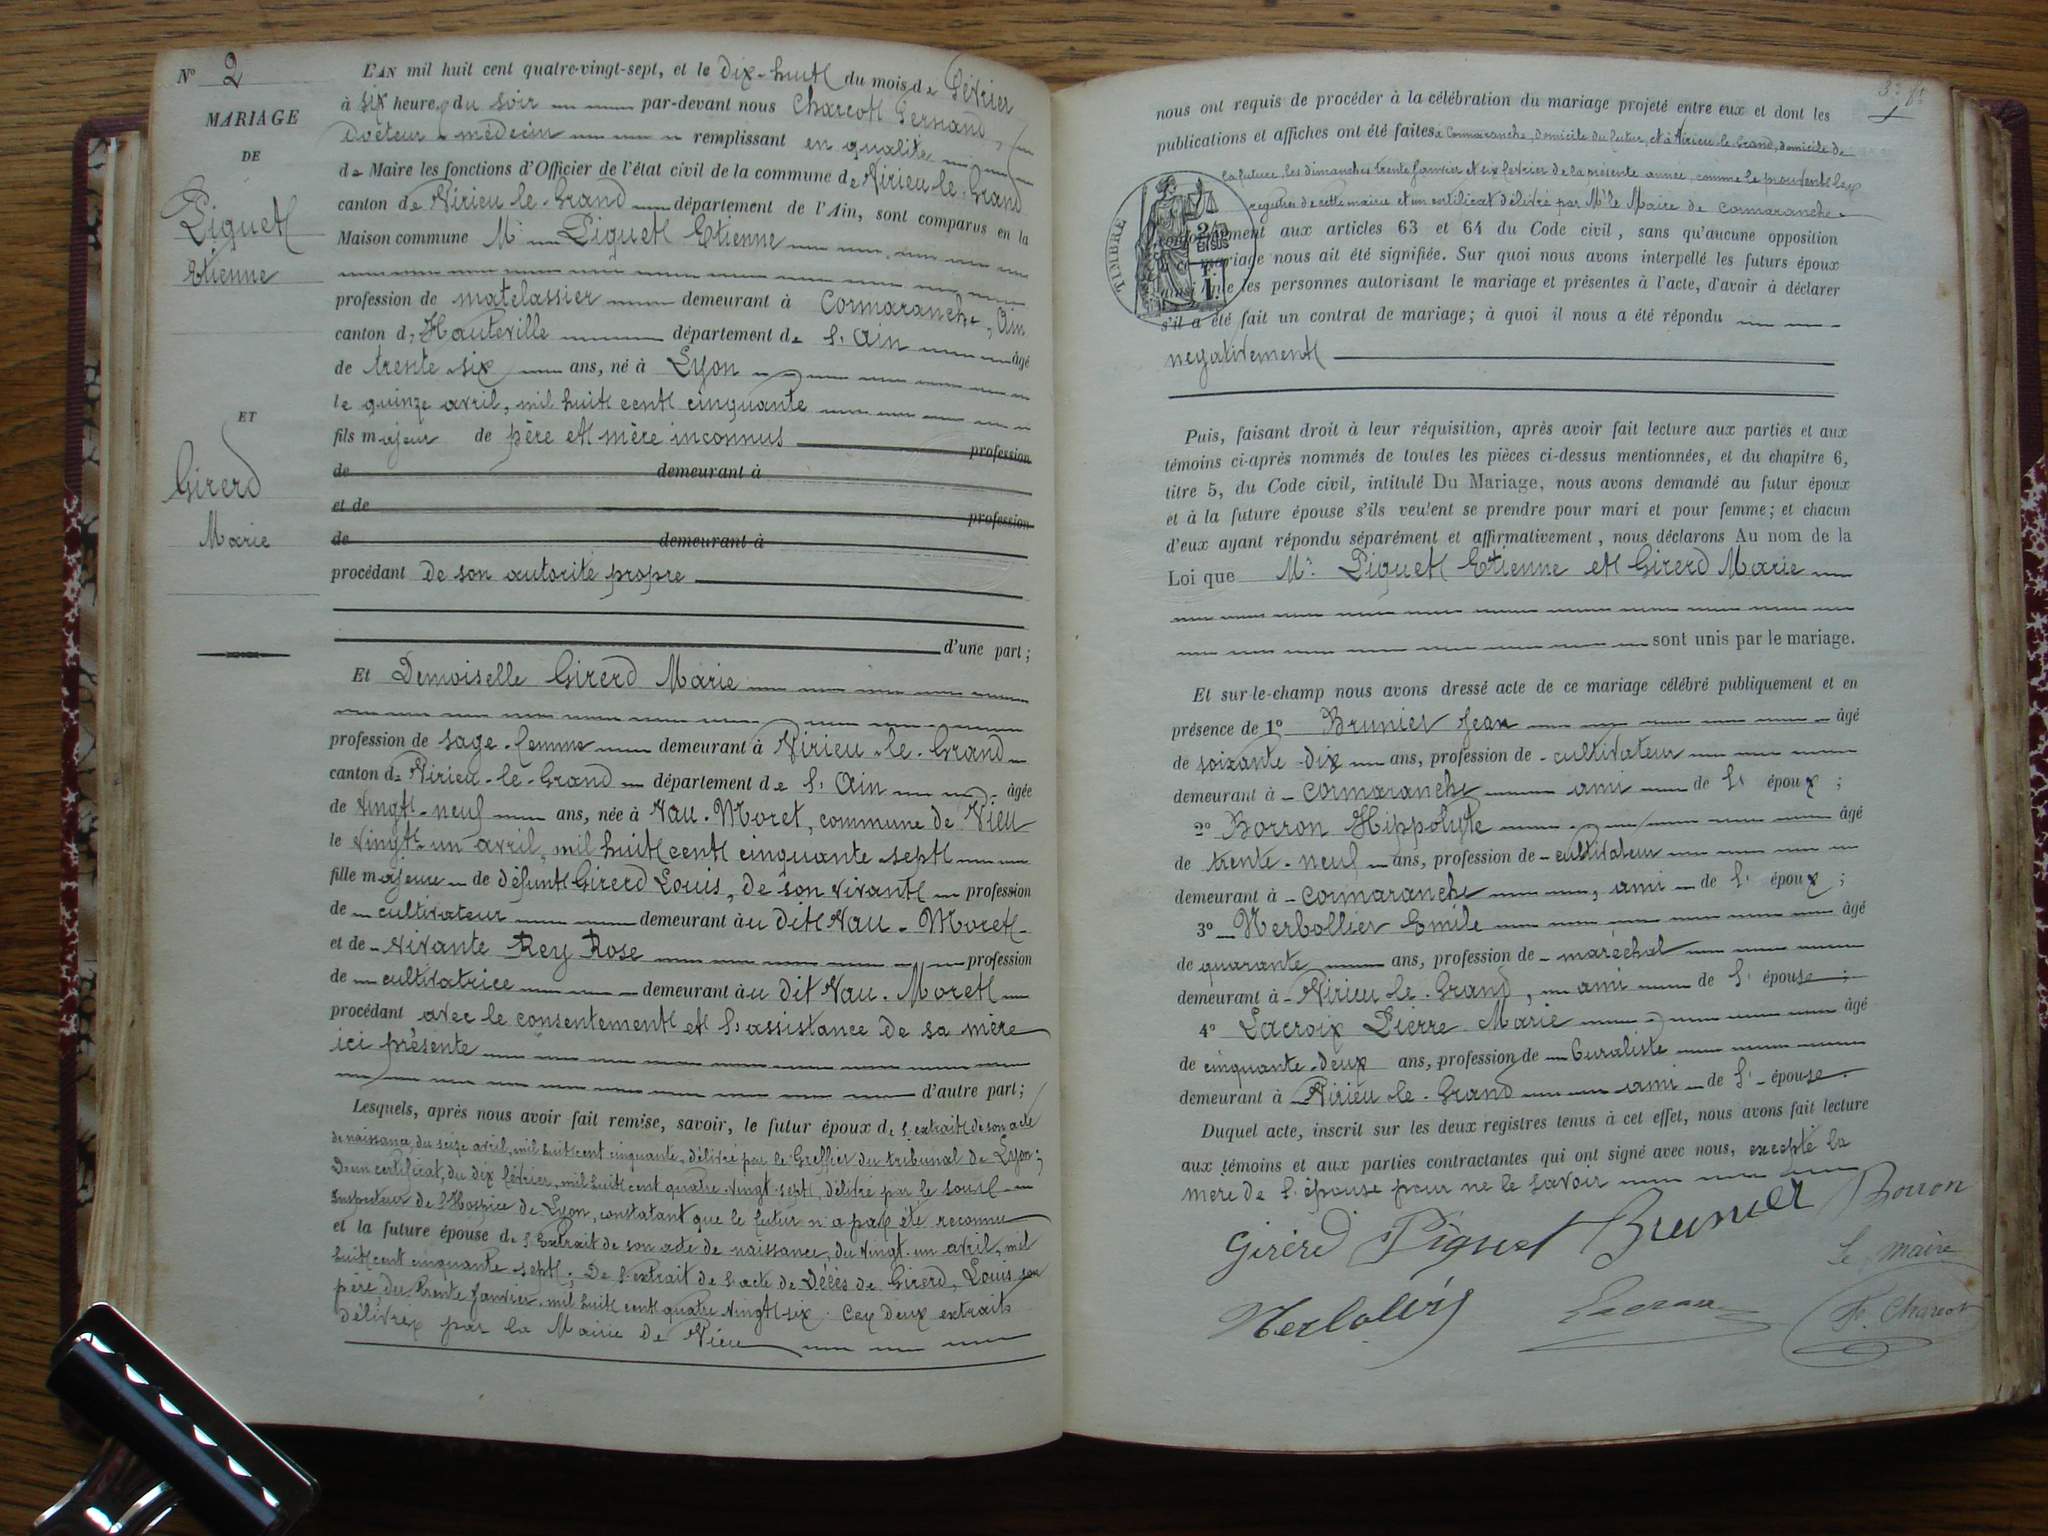 N° 2
MARIAGE
DE
Piguet
Etienne
ET
Girerd
Marie
L'AN mil huit cent quatre-vingt-sept, et le dix-huit du mois de février
à six heures du soir par-devant nous Charcot Fernand,
Docteur médecin remplissant en qualité
de Maire les fonctions d'Officier de l'état civil de la commune de Virieu-le-Grand
canton de Virieu-le-Grand département de l'Ain, sont comparus en la
Maison commune Mr. Piguet Etienne
profession de matelassier demeurant à Cormaranche, Ain
canton d'Hauteville département de l'Ain âgé
de trente-six ans, né à Lyon
le quinze avril, mil huit cent cinquante
fils majeur de père et mère inconnus profession
de demeurant à
et de profession
de demeurant à
procédant de son autorité propre
d'une part;
Et Demoiselle Girerd Marie
profession de sage-femme demeurant à Virieu-le-Grand
canton de Virieu-le-Grand département de l'Ain âgée
de vingt-neuf ans, née à Vau-Moret, commune de Vieu
le vingt-un avril, mil huit cent cinquante-sept
fille majeure de défunt Girerd Louis, de son vivant profession
de cultivateur demeurant au dit Vau-Moret
et de vivante Rey Rose profession
de cultivatrice demeurant au dit Vau-Moret
procédant avec le consentement et l'assistance de sa mère
ici présente
d'autre part;
Lesquels, après nous avoir fait remise, savoir, le futur époux de l'extrait de son acte
de naissance, du seize avril, mil huit cent cinquante, délivré par le Greffier du tribunal de Lyon;
D'un certificat, du dix février, mil huit cent quatre-vingt-sept, délivré par le sous-
Inspecteur de l'Hospice de Lyon, constatant que le futur n'a pas été reconnu
et la future épouse de l'Extrait de son acte de naissance, du vingt-un avril, mil
huit cent cinquante-sept; De l'extrait de l'acte de Décès de Girerd, Louis son
père, du trente janvier, mil huit cent quatre-vingt-six. Ces deux extraits
délivrés par la Mairie de Vieu
nous ont requis de procéder à la célébration du mariage projeté entre eux et dont les
publications et affiches ont été faites à Cormaranche, domicile du futur, et à Virieu-le-Grand, domicile de
la future, les dimanches trente janvier et six février de la présente année, comme le prouvent les
registres de cette mairie et un certificat délivré par Mr le Maire de Cormaranche
TIMBRE
conformément aux articles 63 et 64 du Code civil, sans qu'aucune opposition
à ce mariage nous ait été signifiée. Sur quoi nous avons interpellé les futurs époux
ainsi que les personnes autorisant le mariage et présentes à l'acte, d'avoir à déclarer
s'il a été fait un contrat de mariage; à quoi il nous a été répondu
négativement
Puis, faisant droit à leur réquisition, après avoir fait lecture aux parties et aux
témoins ci-après nommés de toutes les pièces ci-dessus mentionnées, et du chapitre 6,
titre 5, du Code civil, intitulé Du Mariage, nous avons demandé au futur époux
et à la future épouse s'ils veulent se prendre pour mari et pour femme; et chacun
d'eux ayant répondu séparément et affirmativement, nous déclarons Au nom de la
Loi que Mr. Piguet Etienne et Girerd Marie
sont unis par le mariage.
Et sur-le-champ nous avons dressé acte de ce mariage célébré publiquement et en
présence de 1° Brunier Jean âgé
de soixante-dix ans, profession de cultivateur
demeurant à Cormaranche ami de l'époux;
2° Borron Hippolyte âgé
de trente-neuf ans, profession de cultivateur
demeurant à Cormaranche, ami de l'époux;
3° Merbollier Emile âgé
de quarante ans, profession de maréchal
demeurant à Virieu-le-Grand, ami de l'épouse;
4° Lacroix Pierre Marie âgé
de cinquante-deux ans, profession de buraliste
demeurant à Virieu-le-Grand ami de l'épouse.
Duquel acte, inscrit sur les deux registres tenus à cet effet, nous avons fait lecture
aux témoins et aux parties contractantes qui ont signé avec nous, excepté la
mère de l'épouse pour ne le savoir
Girerd Piguet Brunier Borron
Le maire
F. Charcot